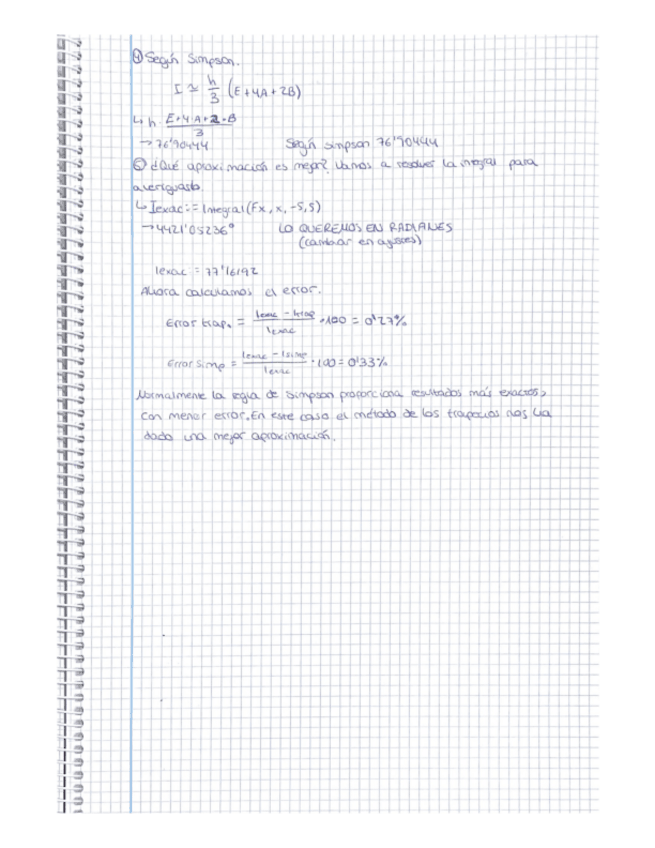 ④ Según Simpson.
I ≃ h/3 (E+4A+2B)
↳ h · E+4·A+2·B / 3
→ 76'90444 Según simpson 76'90444
⑤ ¿Qué aproximación es mejor? Vamos a resolver la integral para
averiguarlo.
↳ Iexac:= Integral (Fx, x, -5, 5)
→ 4421'05236° LO QUEREMOS EN RADIANES
(cambiar en ajustes)
Iexac = 77'16192
Ahora calculamos el error.
Error trap. = Iexac - Itrap / Iexac · 100 = 0'27%
Error Simp = Iexac - Isimp / Iexac · 100 = 0'33%
Normalmente la regla de Simpson proporciona resultados más exactos,
con menor error. En este caso el método de los trapecios nos ha
dado una mejor aproximación.